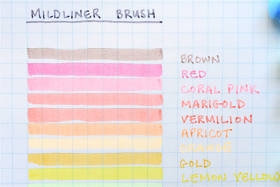 MILDLINER BRUSH
BROWN
RED
CORAL PINK
MARIGOLD
VERMILION
APRICOT
GOLD
LEMON YELLOW